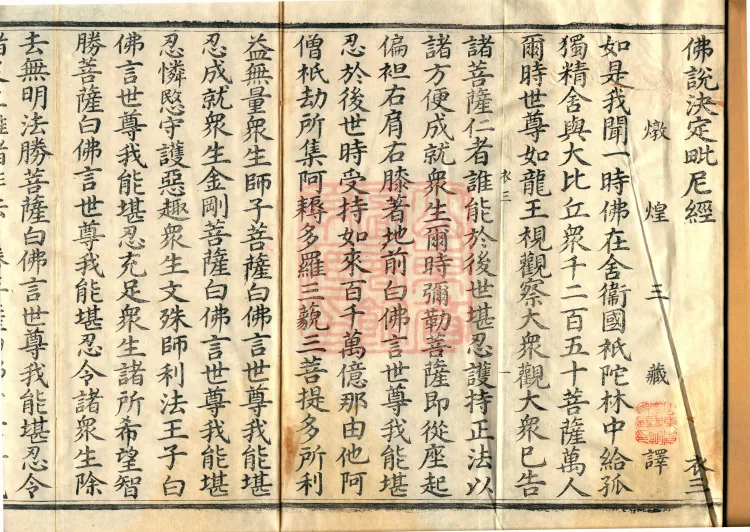 佛說決定毗尼經
衣三
燉煌三藏譯
如是我聞一時佛在舍衞國祇陀林中給孤
獨精舍與大比丘衆千二百五十菩薩萬人
爾時世尊如龍王視觀察大衆觀大衆已告
衣三 一
諸菩薩仁者誰能於後世堪忍護持正法以
諸方便成就衆生爾時彌勒菩薩即從座起
偏袒右肩右膝著地前白佛言世尊我能堪
忍於後世時受持如來百千萬億那由他阿
僧祇劫所集阿耨多羅三藐三菩提多所利
益無量衆生師子菩薩白佛言世尊我能堪
忍成就衆生金剛菩薩白佛言世尊我能堪
忍憐愍守護惡趣衆生文殊師利法王子白
佛言世尊我能堪忍充足衆生諸所希望智
勝菩薩白佛言世尊我能堪忍令諸衆生除
去無明法勝菩薩白佛言世尊我能堪忍令